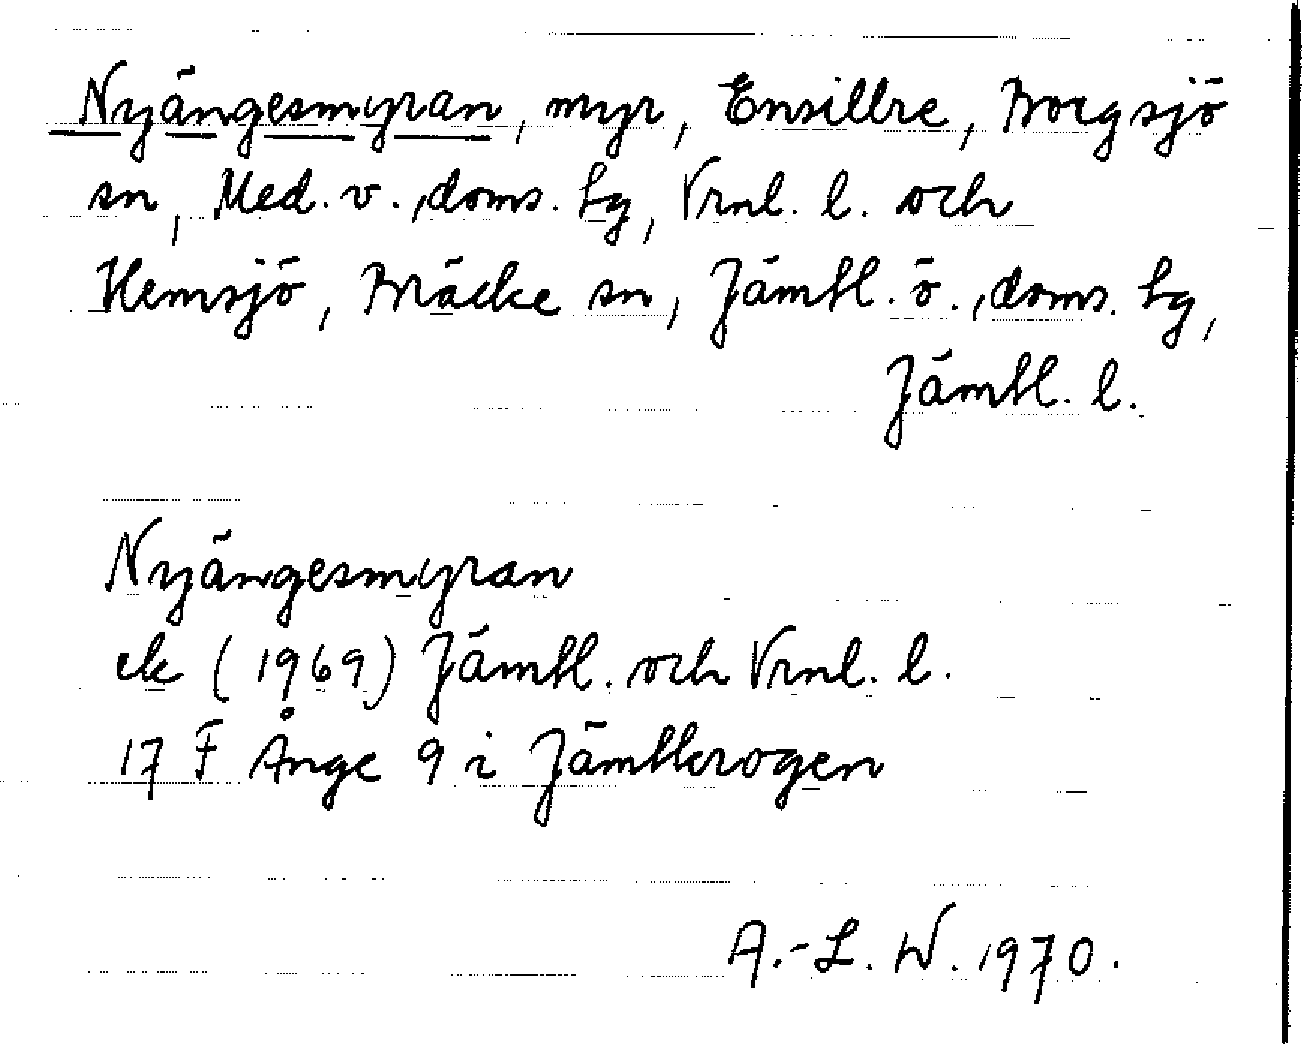 Nyängesmyran, myr, Ensillre, Borgsjö
sn, Med. v., doms. hg, Vrnl. l. och
Hemsjö, Bräcke sn, Jämtl. ö., doms. hg,
Jämtl. l.
Nyängesmyran
ek (1969) Jämtl. och Vrnl. l.
17 F Ånge 9 i Jämtkrogen
A.-L. W. 1970.